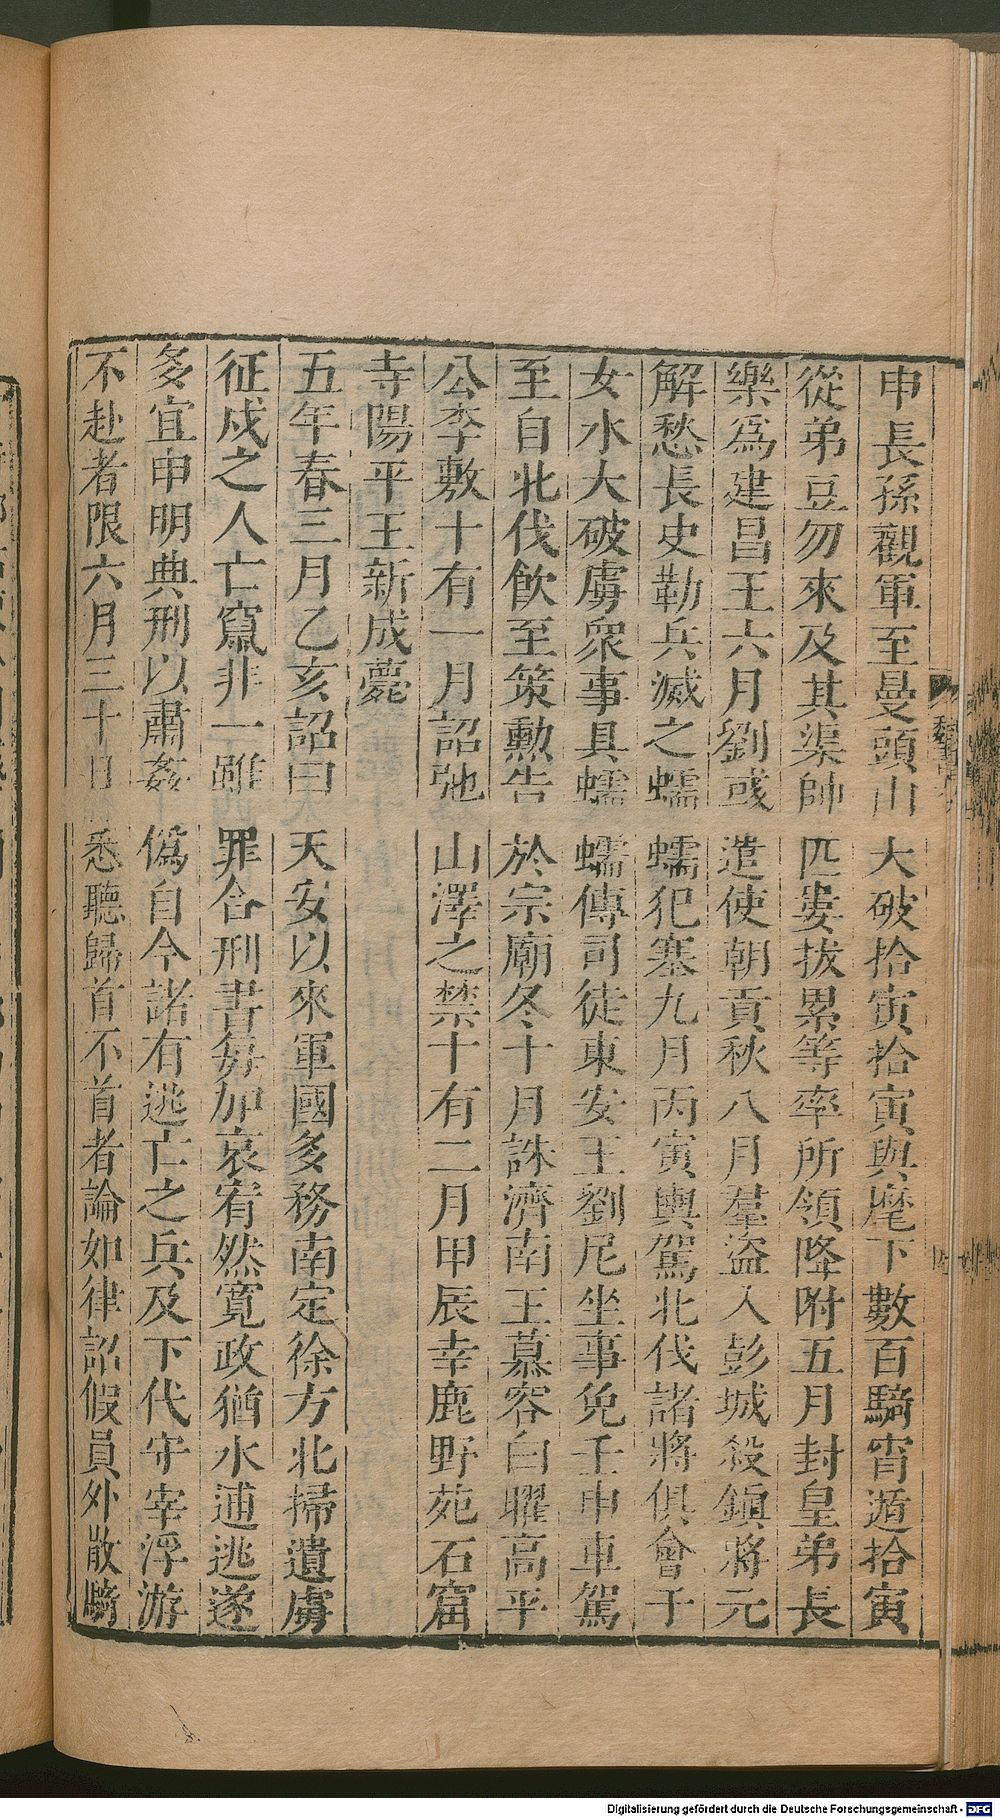 申長孫觀軍至曼頭山大破拾寅拾寅與麾下數百騎宵遁拾寅
從弟豆勿來及其渠帥匹婁拔累等率所領降附五月封皇弟長
樂爲建昌王六月劉彧遣使朝貢秋八月羣盜入彭城殺鎮將元
解愁長史勒兵滅之蠕蠕犯塞九月丙寅輿駕北伐諸將俱會于
女水大破虜衆事具蠕蠕傳司徒東安王劉尼坐事免壬申車駕
至自北伐飲至策勳告於宗廟冬十月誅濟南王慕容白曜高平
公李敷十有一月詔弛山澤之禁十有二月甲辰幸鹿野苑石窟
寺陽平王新成薨
五年春三月乙亥詔曰天安以來軍國多務南定徐方北掃遺虜
征戍之人亡竄非一雖罪合刑書每加哀宥然寬政猶水逋逃遂
多宜申明典刑以肅姦僞自今諸有逃亡之兵及下代守宰浮游
不赴者限六月三十日悉聽歸首不首者論如律詔假員外散騎
Digitalisierung gefördert durch die Deutsche Forschungsgemeinschaft - DFG